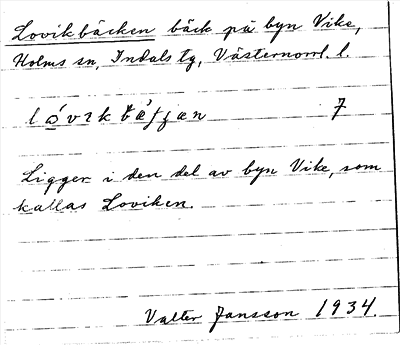 Lovikbäcken bäck på byn Vike,
Holms sn, Indals tg, Västernorrl. l.
7
Ligger i den del av byn Vike, som
kallas Loviken.
Valter Jansson 1934.